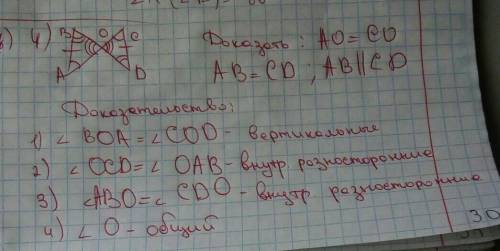 4) B O C Доказать: AO = CO
A D AB = CD, AB || CD
Доказательство:
1) ∠ BOA = ∠ COD - вертикальные
2) ∠ OCD = ∠ OAB - внутр. разносторонние
3) ∠ ABO = ∠ CDO - внутр. разносторонние
4) ∠ O - общий
30